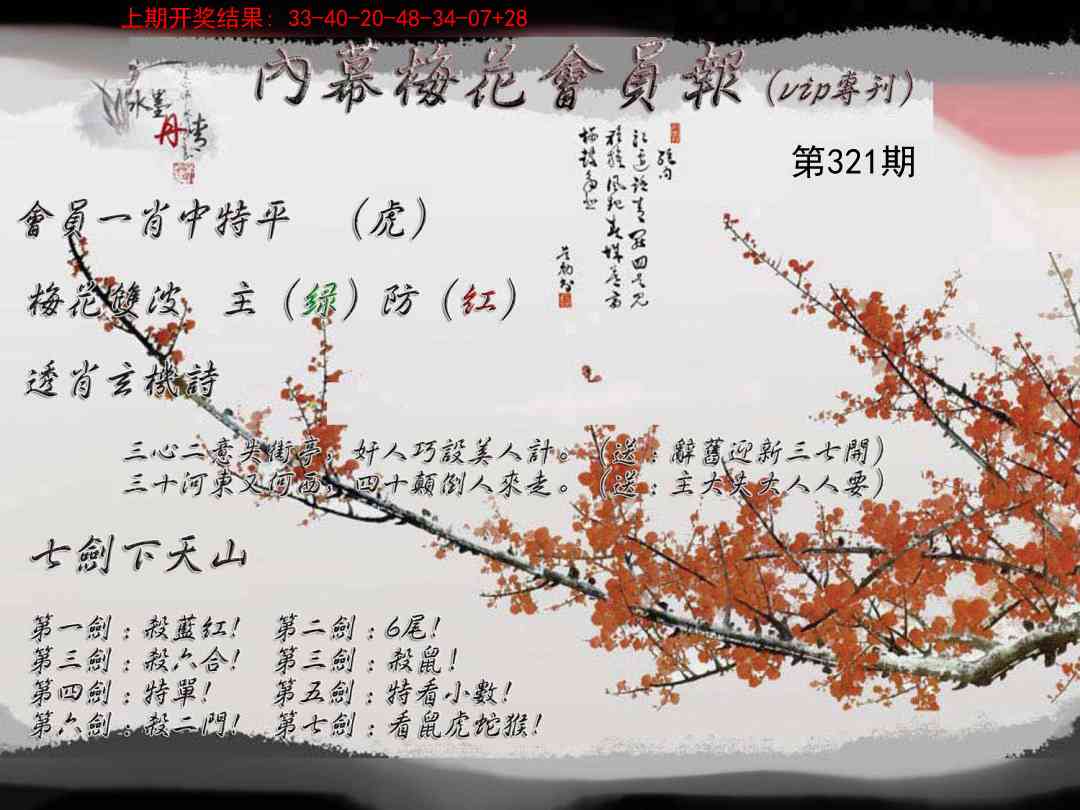 上期开奖结果: 33-40-20-48-34-07+28
內幕梅花會員報(vip專刊)
水墨
丹情
第321期
會員一肖中特平 (虎)
梅花雙波 主(绿)防(红)
透肖玄機詩
三心二意失街亭,奸人巧設美人計。(送:辭舊迎新三七開)
三十河東又何西,四十顛倒人來走。(送:主大失大人人要)
七劍下天山
第一劍:殺藍紅! 第二劍:6尾!
第三劍:殺六合! 第三劍:殺鼠!
第四劍:特單! 第五劍:特看小數!
第六劍:殺二門! 第七劍:看鼠虎蛇猴!